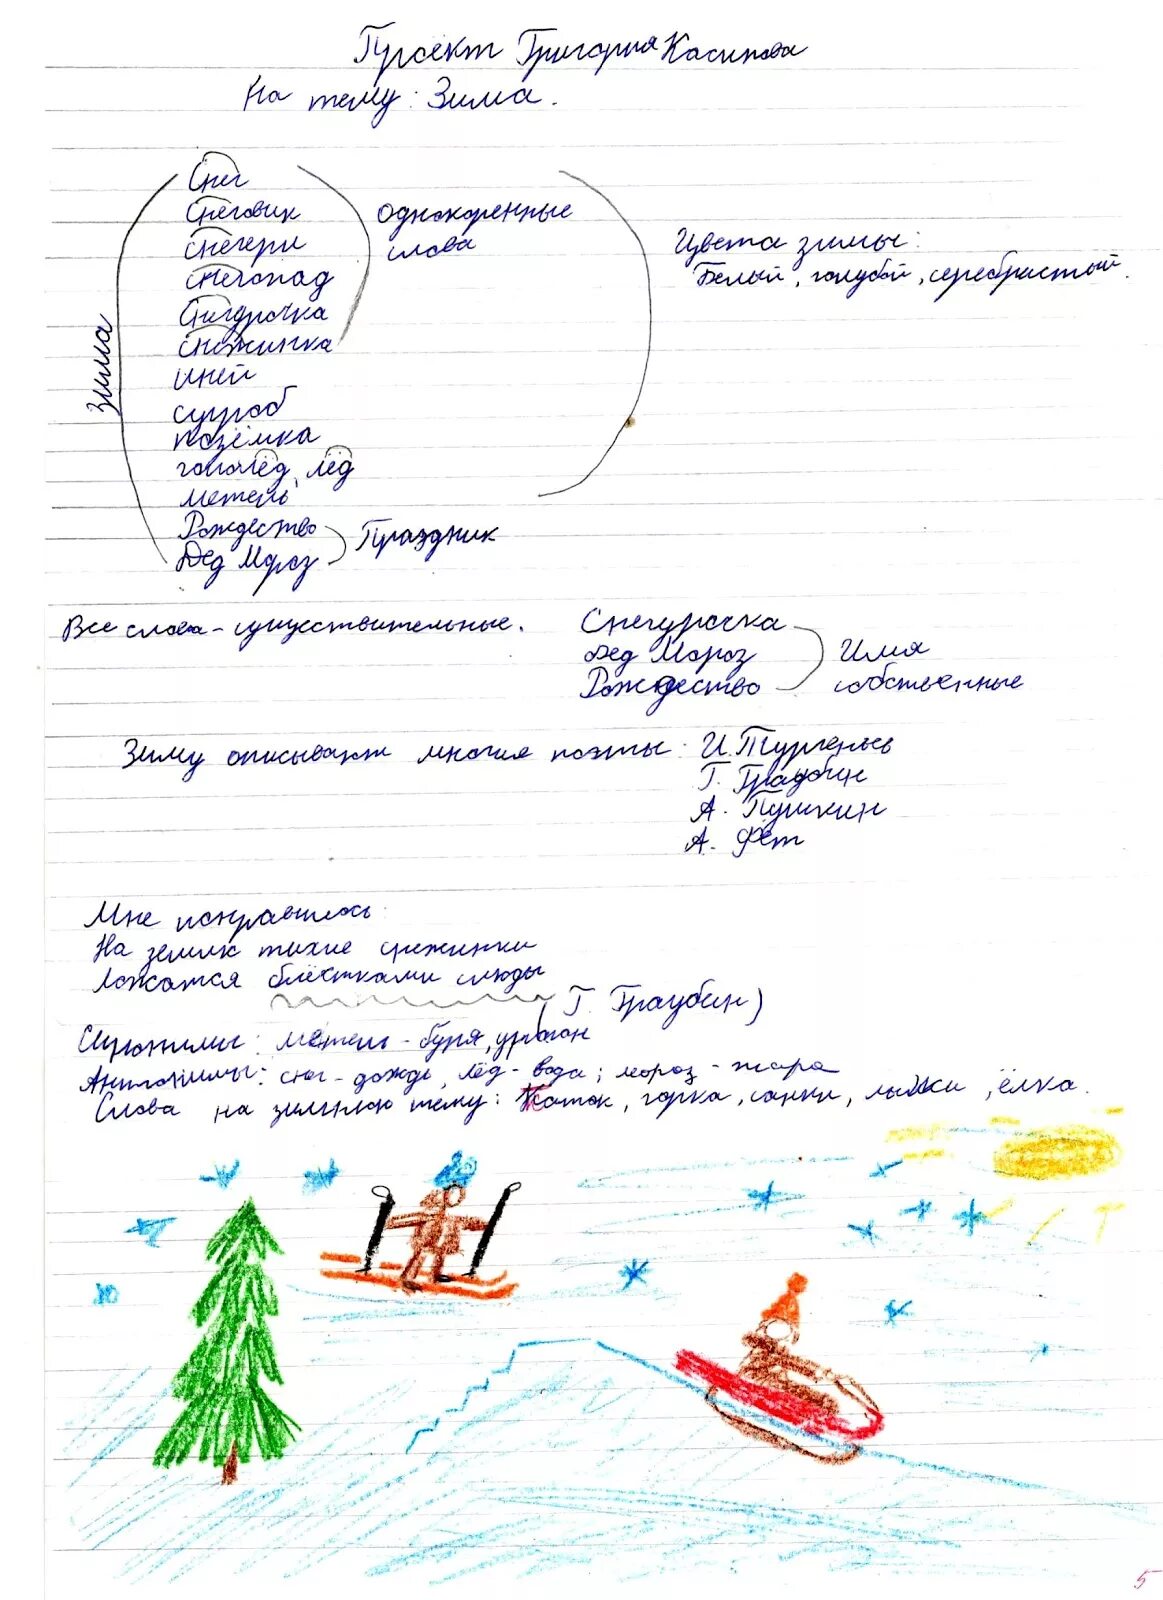 Проект Григория Касимова
На тему: Зима.
зима
Снег
Снеговик
снегери
снегопад
Снегурочка
снежинка
иней
сугроб
позёмка
гололёд, лёд
метель
Рождество
Дед Мороз
однокоренные
слова
Праздник
Цвета зимы:
Белый, голубой, серебристый.
Все слова - существительные.
Снегурочка
Дед Мороз
Рождество
Имя
собственные
Зиму описывают многие поэты:
И. Тургеньев
Г. Граубин
А. Пушкин
А. Фет
Мне понравилось:
На землю тихие снежинки
Ложатся блёстками слюды
(Г. Граубин)
Синонимы: метель - буря, ураган
Антонимы: снег - дождь, лёд - вода; мороз - жара
Слова на зимнюю тему: Каток, горка, санки, лыжи, ёлка.
5